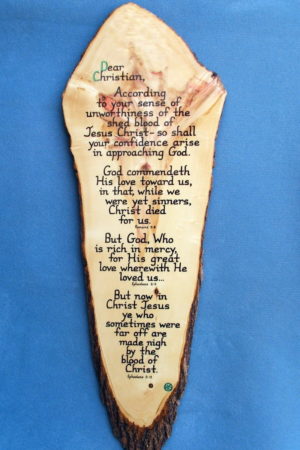 Dear
Christian,
According
to your sense of
unworthiness of the
shed blood of
Jesus Christ- so shall
your confidence arise
in approaching God.
God commendeth
His love toward us,
in that, while we
were yet sinners,
Christ died
for us.
Romans 5:8
But God, Who
is rich in mercy,
for His great
love wherewith He
loved us...
Ephesians 2:4
But now in
Christ Jesus
ye who
sometimes were
far off are
made nigh
by the
blood of
Christ.
Ephesians 2:13